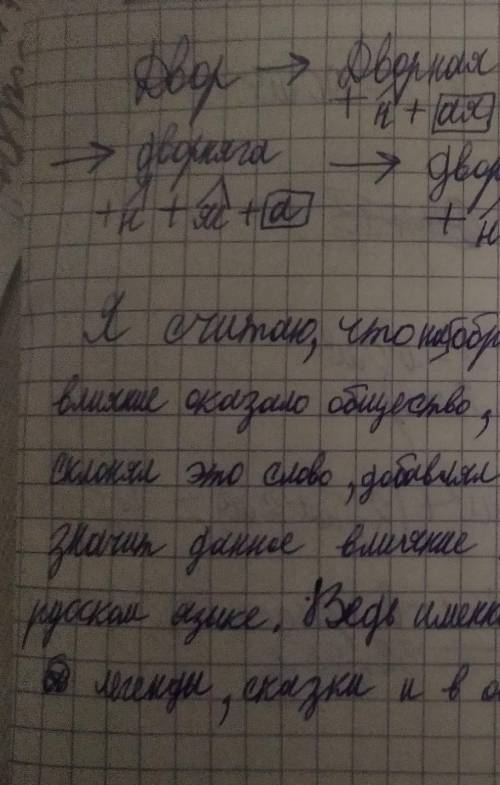 Двор → Дворная
+ н + ая
→ дворняга → двор
+ н + яг + а + н
Я считаю, что на обр
влияние оказало общество,
склонял это слово, добавлял
значит данное влияние
русском языке. Ведь именн
легенды, сказки и в о